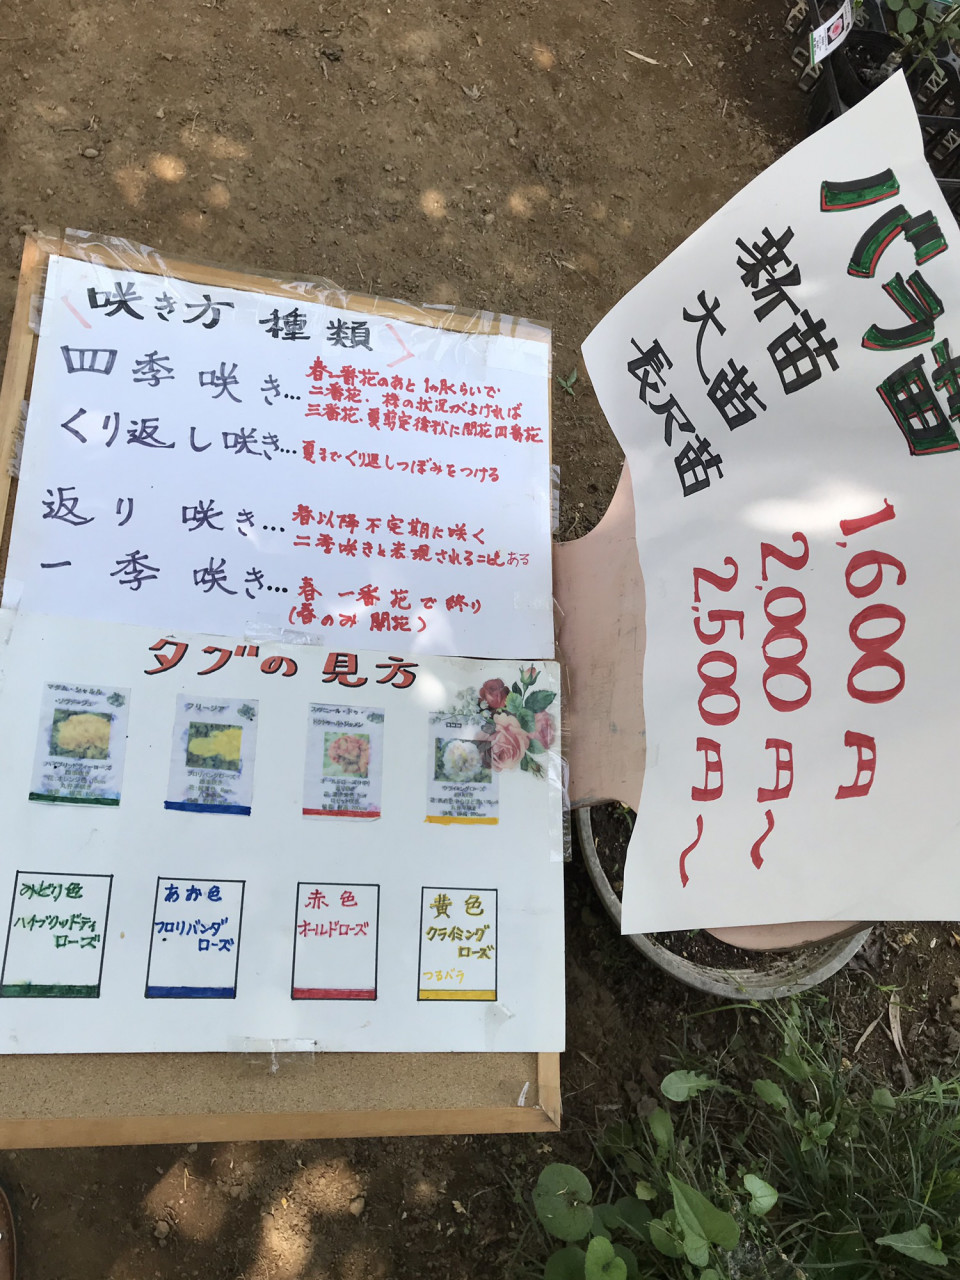 咲き方 種類
四季咲き…春一番花のあと1ヵ月くらいで
二番花、株の状況がよければ
三番花、夏剪定後秋に開花四番花
くり返し咲き…夏までくり返しつぼみをつける
返り咲き…春以降不定期に咲く
二季咲きと表現されることもある
一季咲き…春一番花で終り
(春のみ開花)
タグの見方
クリーシア
みどり色
ハイブリッドティ
ローズ
あか色
フロリバンダ
ローズ
赤色
オールドローズ
黄色
クライミング
ローズ
つるバラ
バラ苗
新苗 1,600円
大苗 2,000円〜
長尺苗 2,500円〜